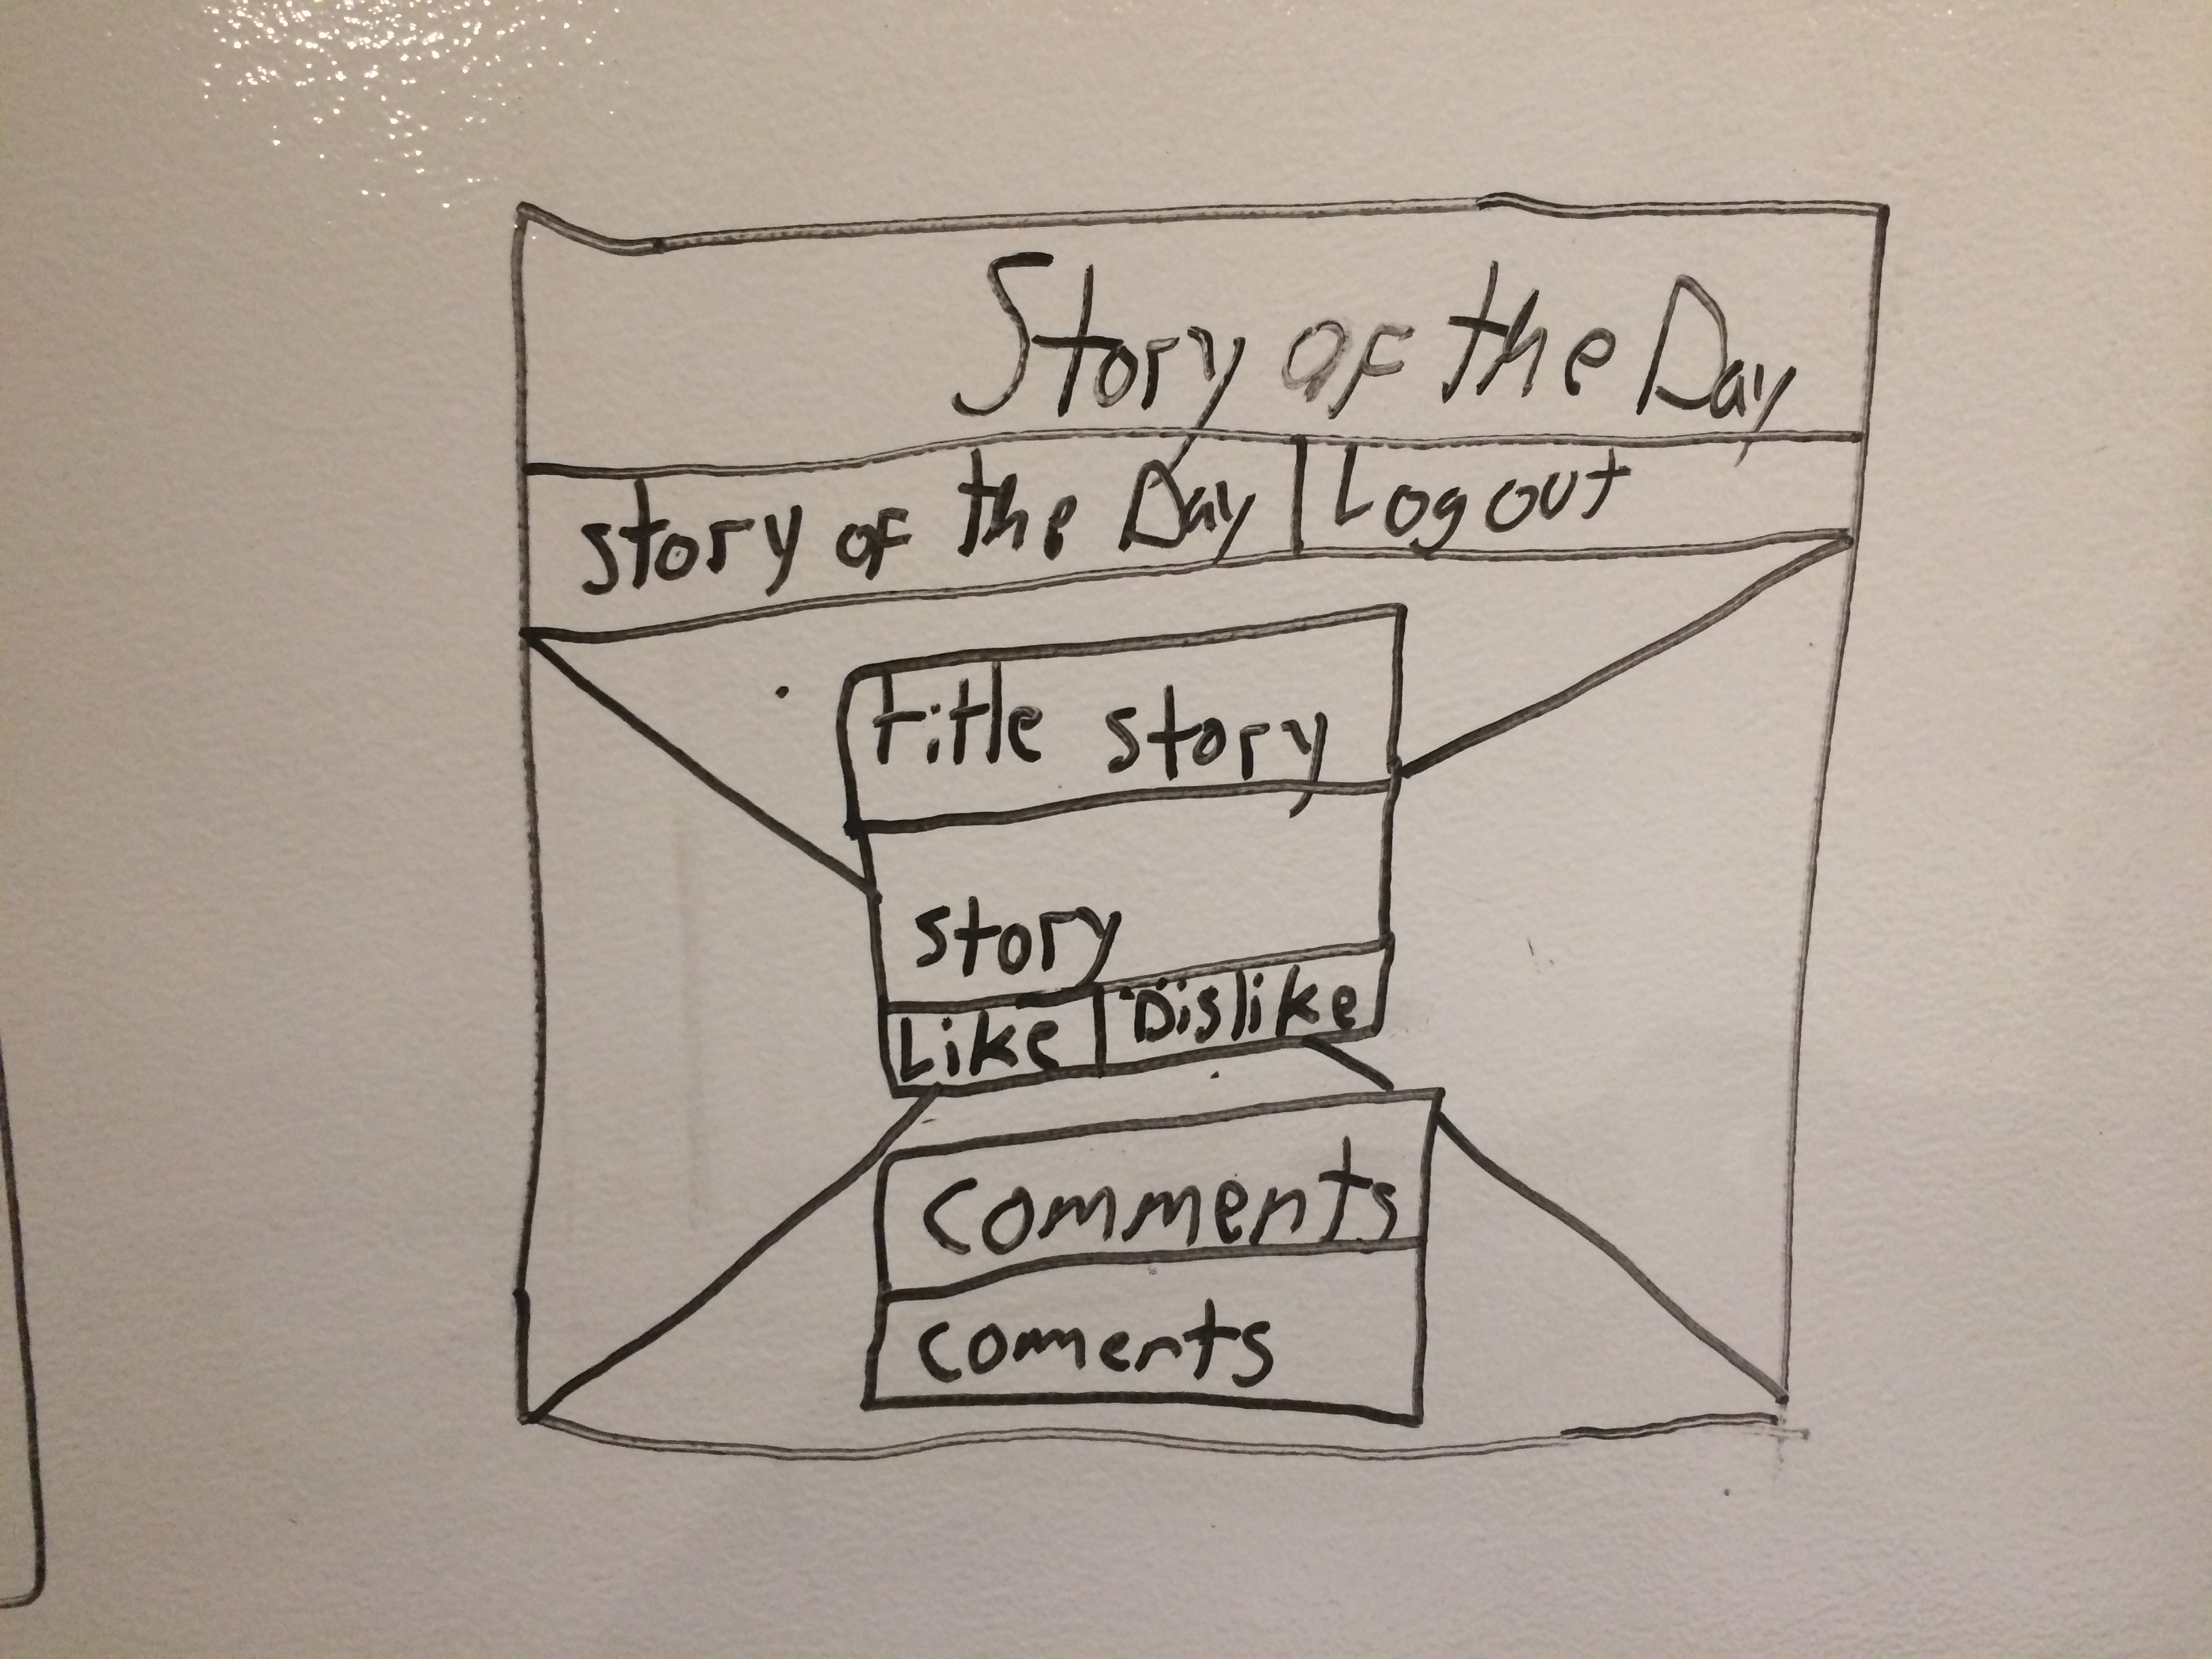 Story of the Day
story of the Day Logout
title story
story
Like Dislike
comments
coments